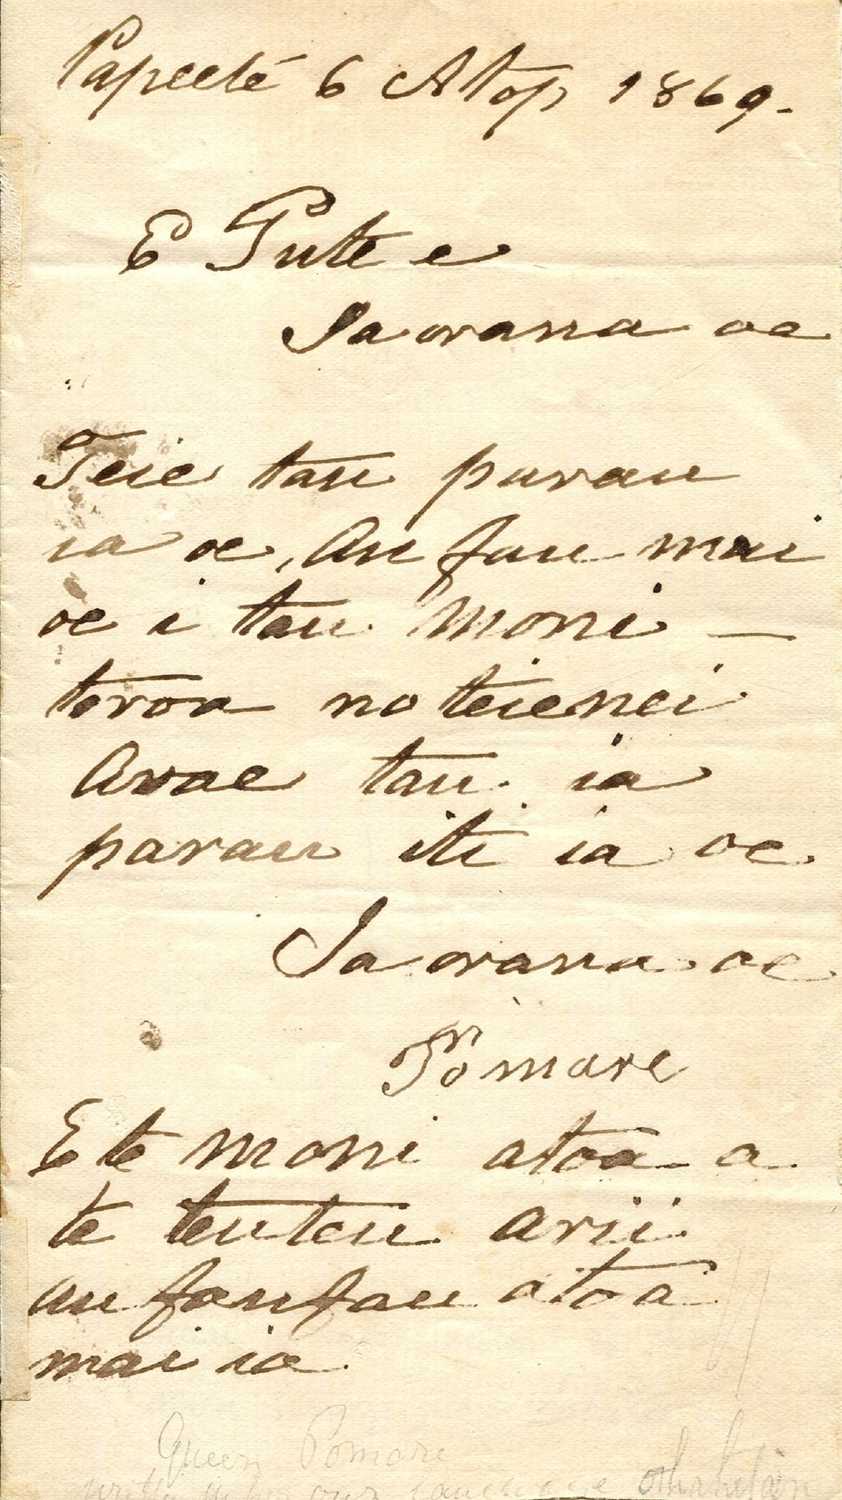 Papeete 6 Atop 1869.
E Pute e
Ia orana oe
Teie tau parau
ia oe, Au fau mai
oe i tau moni —
toroa no teienei
Avae tau ia
parau iti ia oe
Ia orana oe
Pomare
E te moni atoa a
te teuteu arii
au faufau atoa
mai ia
Queen Pomare
written in her own language